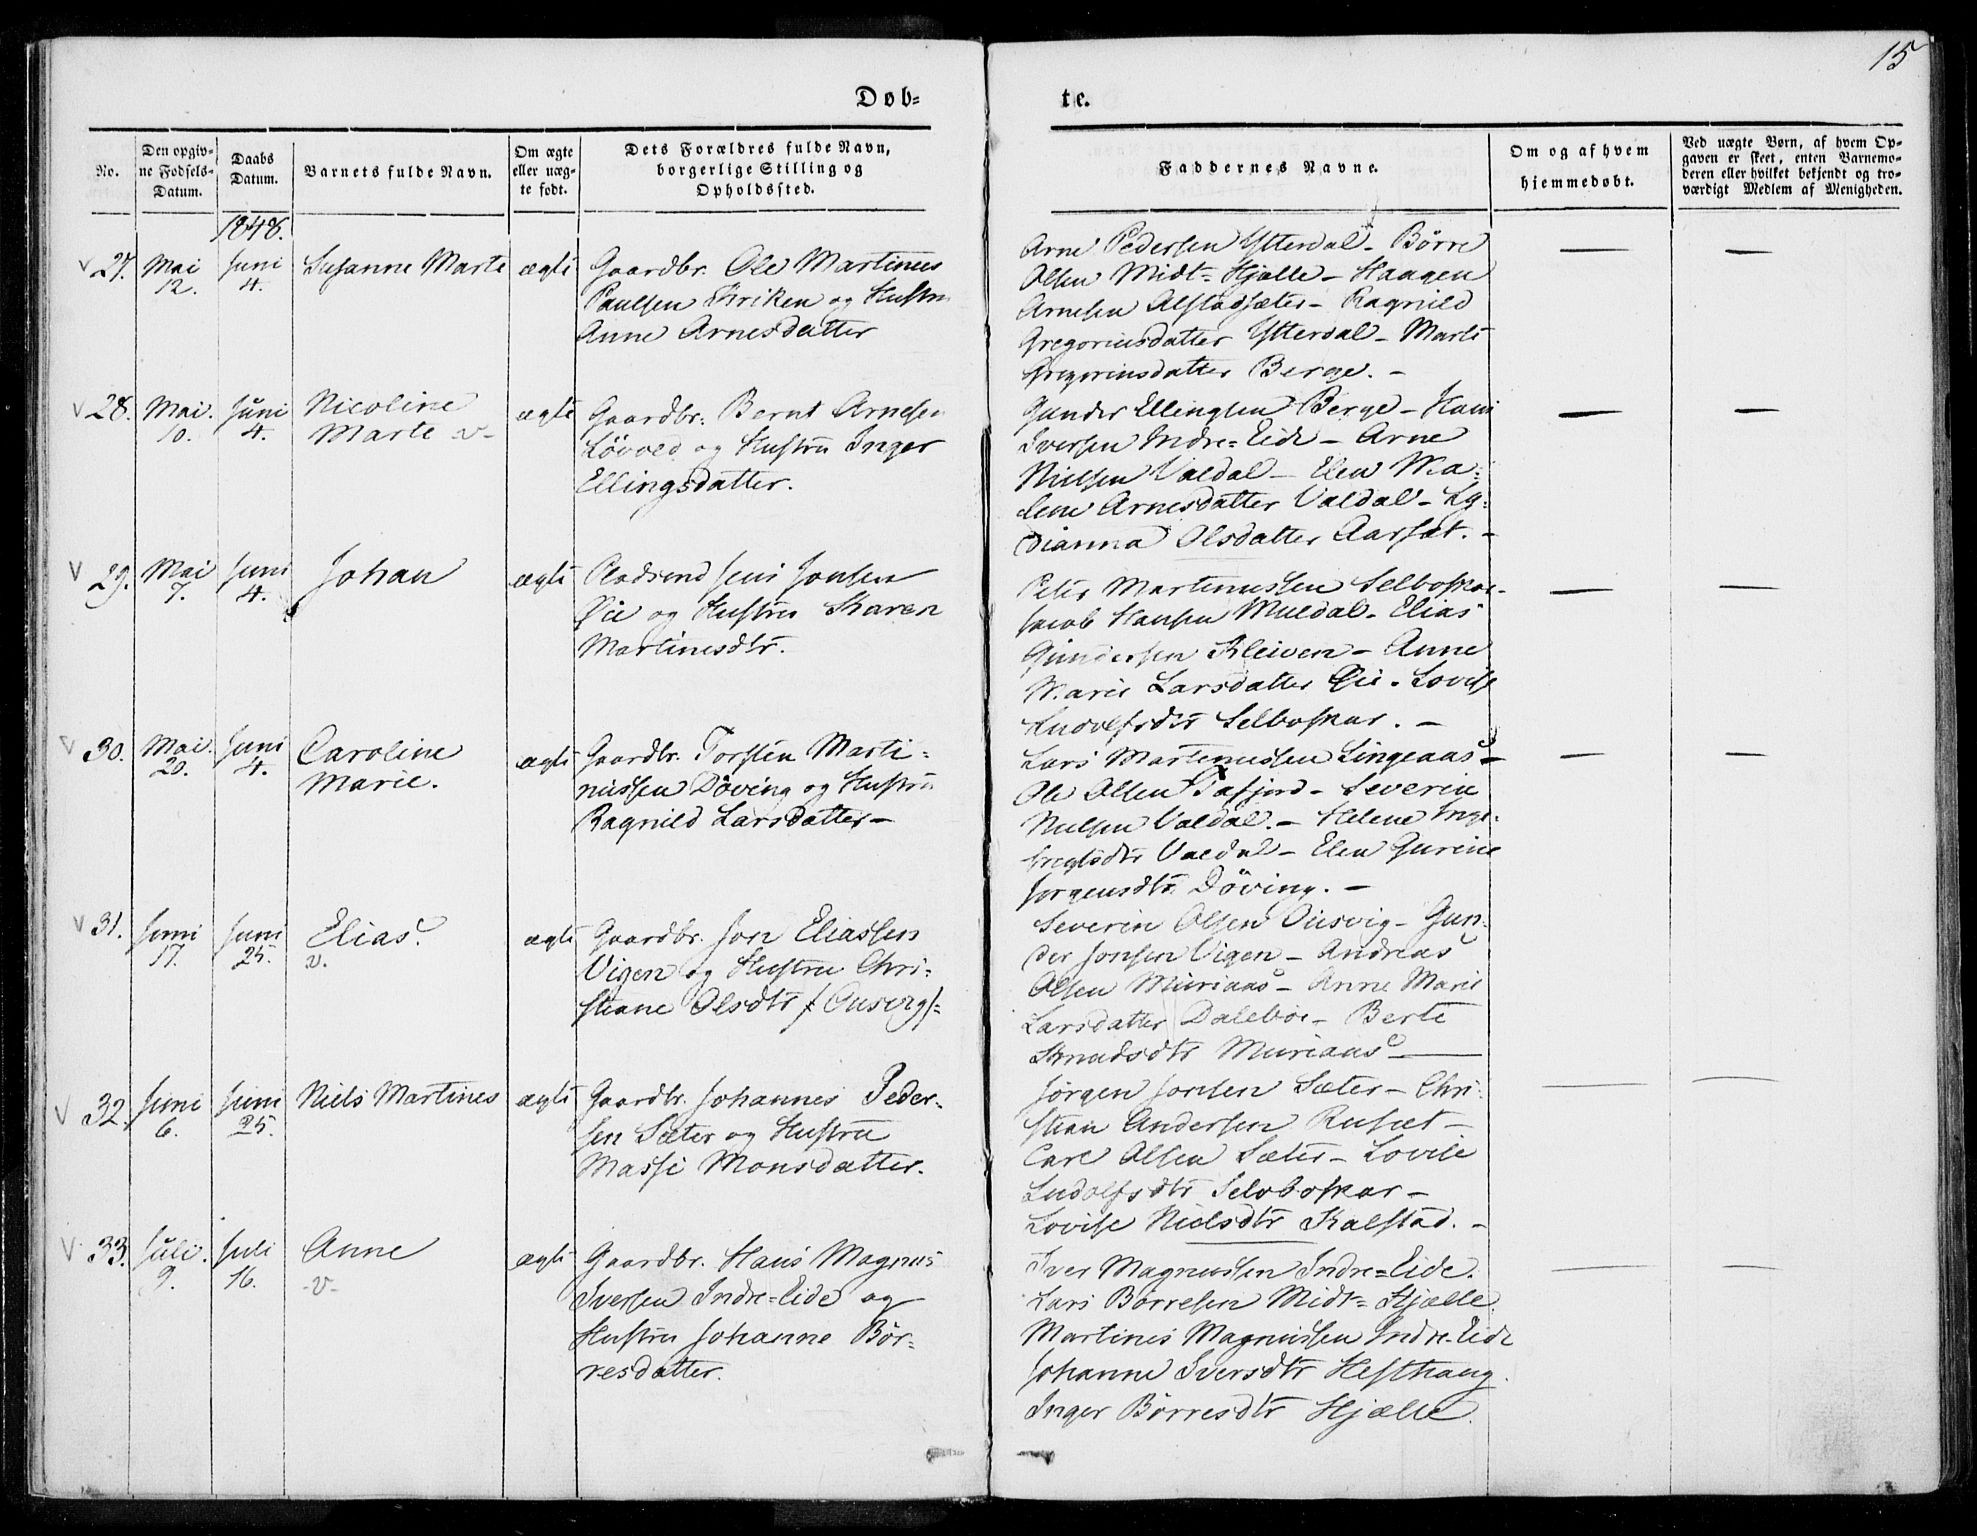 15
Døb-
te.
No.
Den opgiv-
ne Fødsels-
Datum.
Daabs
Datum.
Barnets fulde Navn.
Om ægte
eller uæg-
te født.
Dets Forældres fulde Navn,
borgerlige Stilling og
Opholdssted.
Faddernes Navne.
Om og af hvem
hjemmedøbt.
Ved uægte Børn, af hvem Op-
gaven er skeet, enten Barnemo-
deren eller hvilket bekjendt og tro-
værdigt Medlem af Menigheden.
1848.
27. Mai 12. Juni 4. Susanne Marte ægte
Gaardbr. Ole Martinus
Paulsen Kriken og Hustru
Anne Arnesdatter
Arne Pedersen Ytterdal - Börre
Olsen Midt-Hjelle - Haagen
Arnesen Alstadsæter - Ragnild
Gregoriusdatter Ytterdal - Marte
Gregoriusdatter Berge. -
28. Mai. 10. Juni 4. Nicoline
Marte -v- ægte
Gaardbr. Bernt Arnesen
Lövold og Hustru Inger
Ellingsdatter.
Gunder Ellingsen Berge - Hans
Iversen Indre-Eide - Arne
Nielsen Valdal - Elen Ma-
lene Arnesdatter Valdal - Ly-
dianna Olsdatter Aarsæt. -
29. Mai 7. Juni 4. Johan ægte
Pladsmd Jens Jonsen
Öie og Hustru Karen
Martinusdtr.
Peter Martinussen Selboskar -
Jacob Hansen Muldal - Elias
Gundersen Kleiven - Anne
Marie Larsdatter Öie - Lovise
Ludolfsdtr Selboskar. -
30. Mai. 20. Juni 4. Caroline
Marie. ægte
Gaardbr. Torsten Marti-
nussen Döving og Hustru
Ragnild Larsdatter -
Lars Martinussen Lingeaas -
Ole Olsen Tafjord - Severin
Nielsen Valdal. - Helene Inge-
bregtsdtr Valdal - Elen Gurine
Jørgensdtr Döving. -
31. Juni 17. Juni 25. Elias. v. ægte
Gaardbr. Jon Eliassen
Vigen og Hustru Chri-
stiane Olsdtr /: Onsvig :/
Severin Olsen Onsvig - Gun-
der Jonsen Vigen - Andreas
Olsen Muriaas - Anne Marie
Larsdatter Dalebøe - Berte
Knudsdtr Muriaas -
32. Juni 6. Juni 25. Niels Martines ægte
Gaardbr. Johannes Peder-
sen Sæter og Hustru
Massi Monsdatter.
Jørgen Jonsen Sæter - Chri-
stian Andersen Rusæt -
Carl Olsen Sæter - Lovise
Ludolfsdtr Selboskar -
Lovise Nielsdtr Kalstad. -
33. Juli. 9. Juli 16. Anne -v- ægte
Gaardbr. Hans Magnus
Iversen Indre-Eide og
Hustru Johanne Bör-
resdatter.
Iver Magnussen Indre-Eide.
Lars Börresen Midt-Hjælle
Martinus Magnussen Indre-Eide
Johanne Iversdtr Hesthaug.
Inger Börresdtr Hjælle.